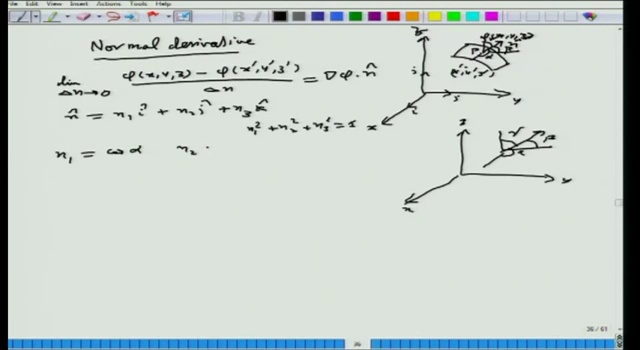 File Edit View Insert Actions Tools Help
Normal derivative
lim Δn→0 φ(x,y,z) − φ(x',y',z') / Δn = ∇φ·n̂
n̂ = n₁ î + n₂ ĵ + n₃ k̂
n₁² + n₂² + n₃² = 1
n₁ = cos α n₂ ·
z
φ(x,y,z)
(x',y',z')
y
x
z
γ
β
α
y
x
36 / 61
36